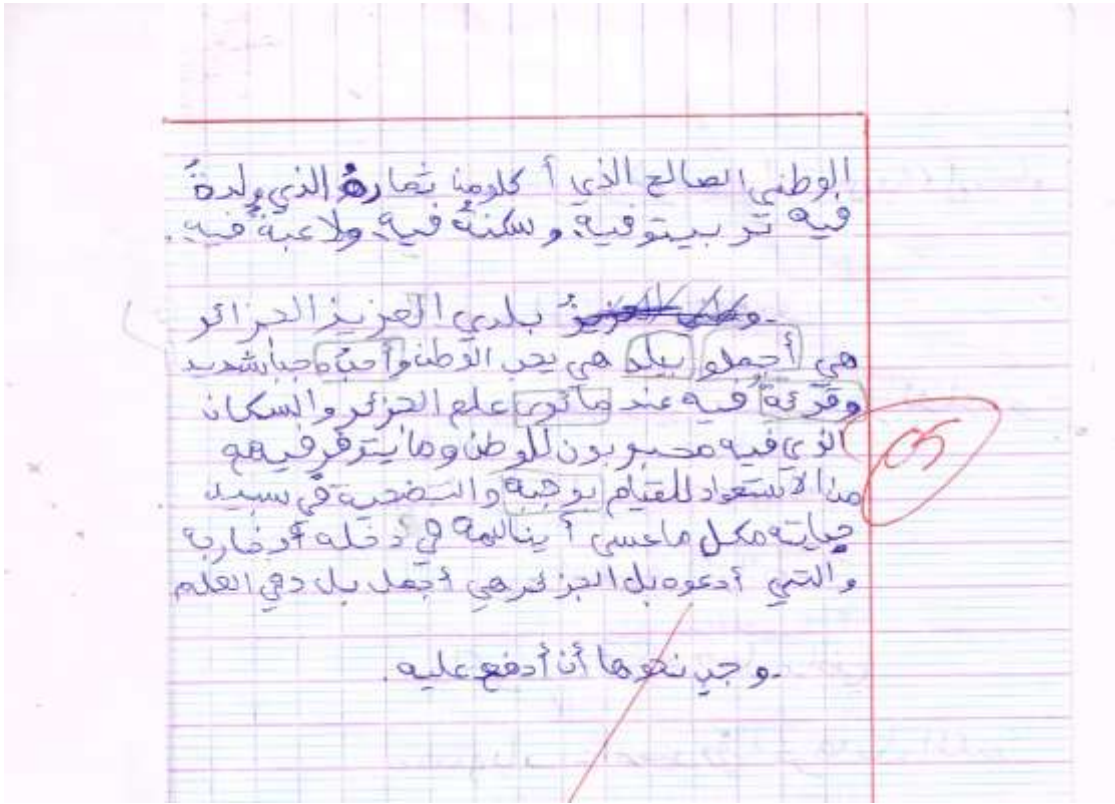 الوطني الصالح الذي أ كلومنا ثماره الذي ولدةُ
فيه تر بيتوفية. و سكنةُ فية. ولاعبةُ فية.
بلدي العزيز الجزائر
هي أجملو بيلد هي يحب الوطن وأحبه حبا شديد
وقرئةُ فيه عند مائوى علم الجزئر والسكان
الذي فيه محبوبون للوطن وما يتوفر فيهم
من الاستعداد للقيام بوجبه والتضحية في سبيد
حمايته مكل ماعسى أ ينالهمة في دخله أو خاربه
والتي أدعوه بل الجزئر هي أجمل بل دفي العلم
-وجبي نحوها أن أدفع عليه.
05